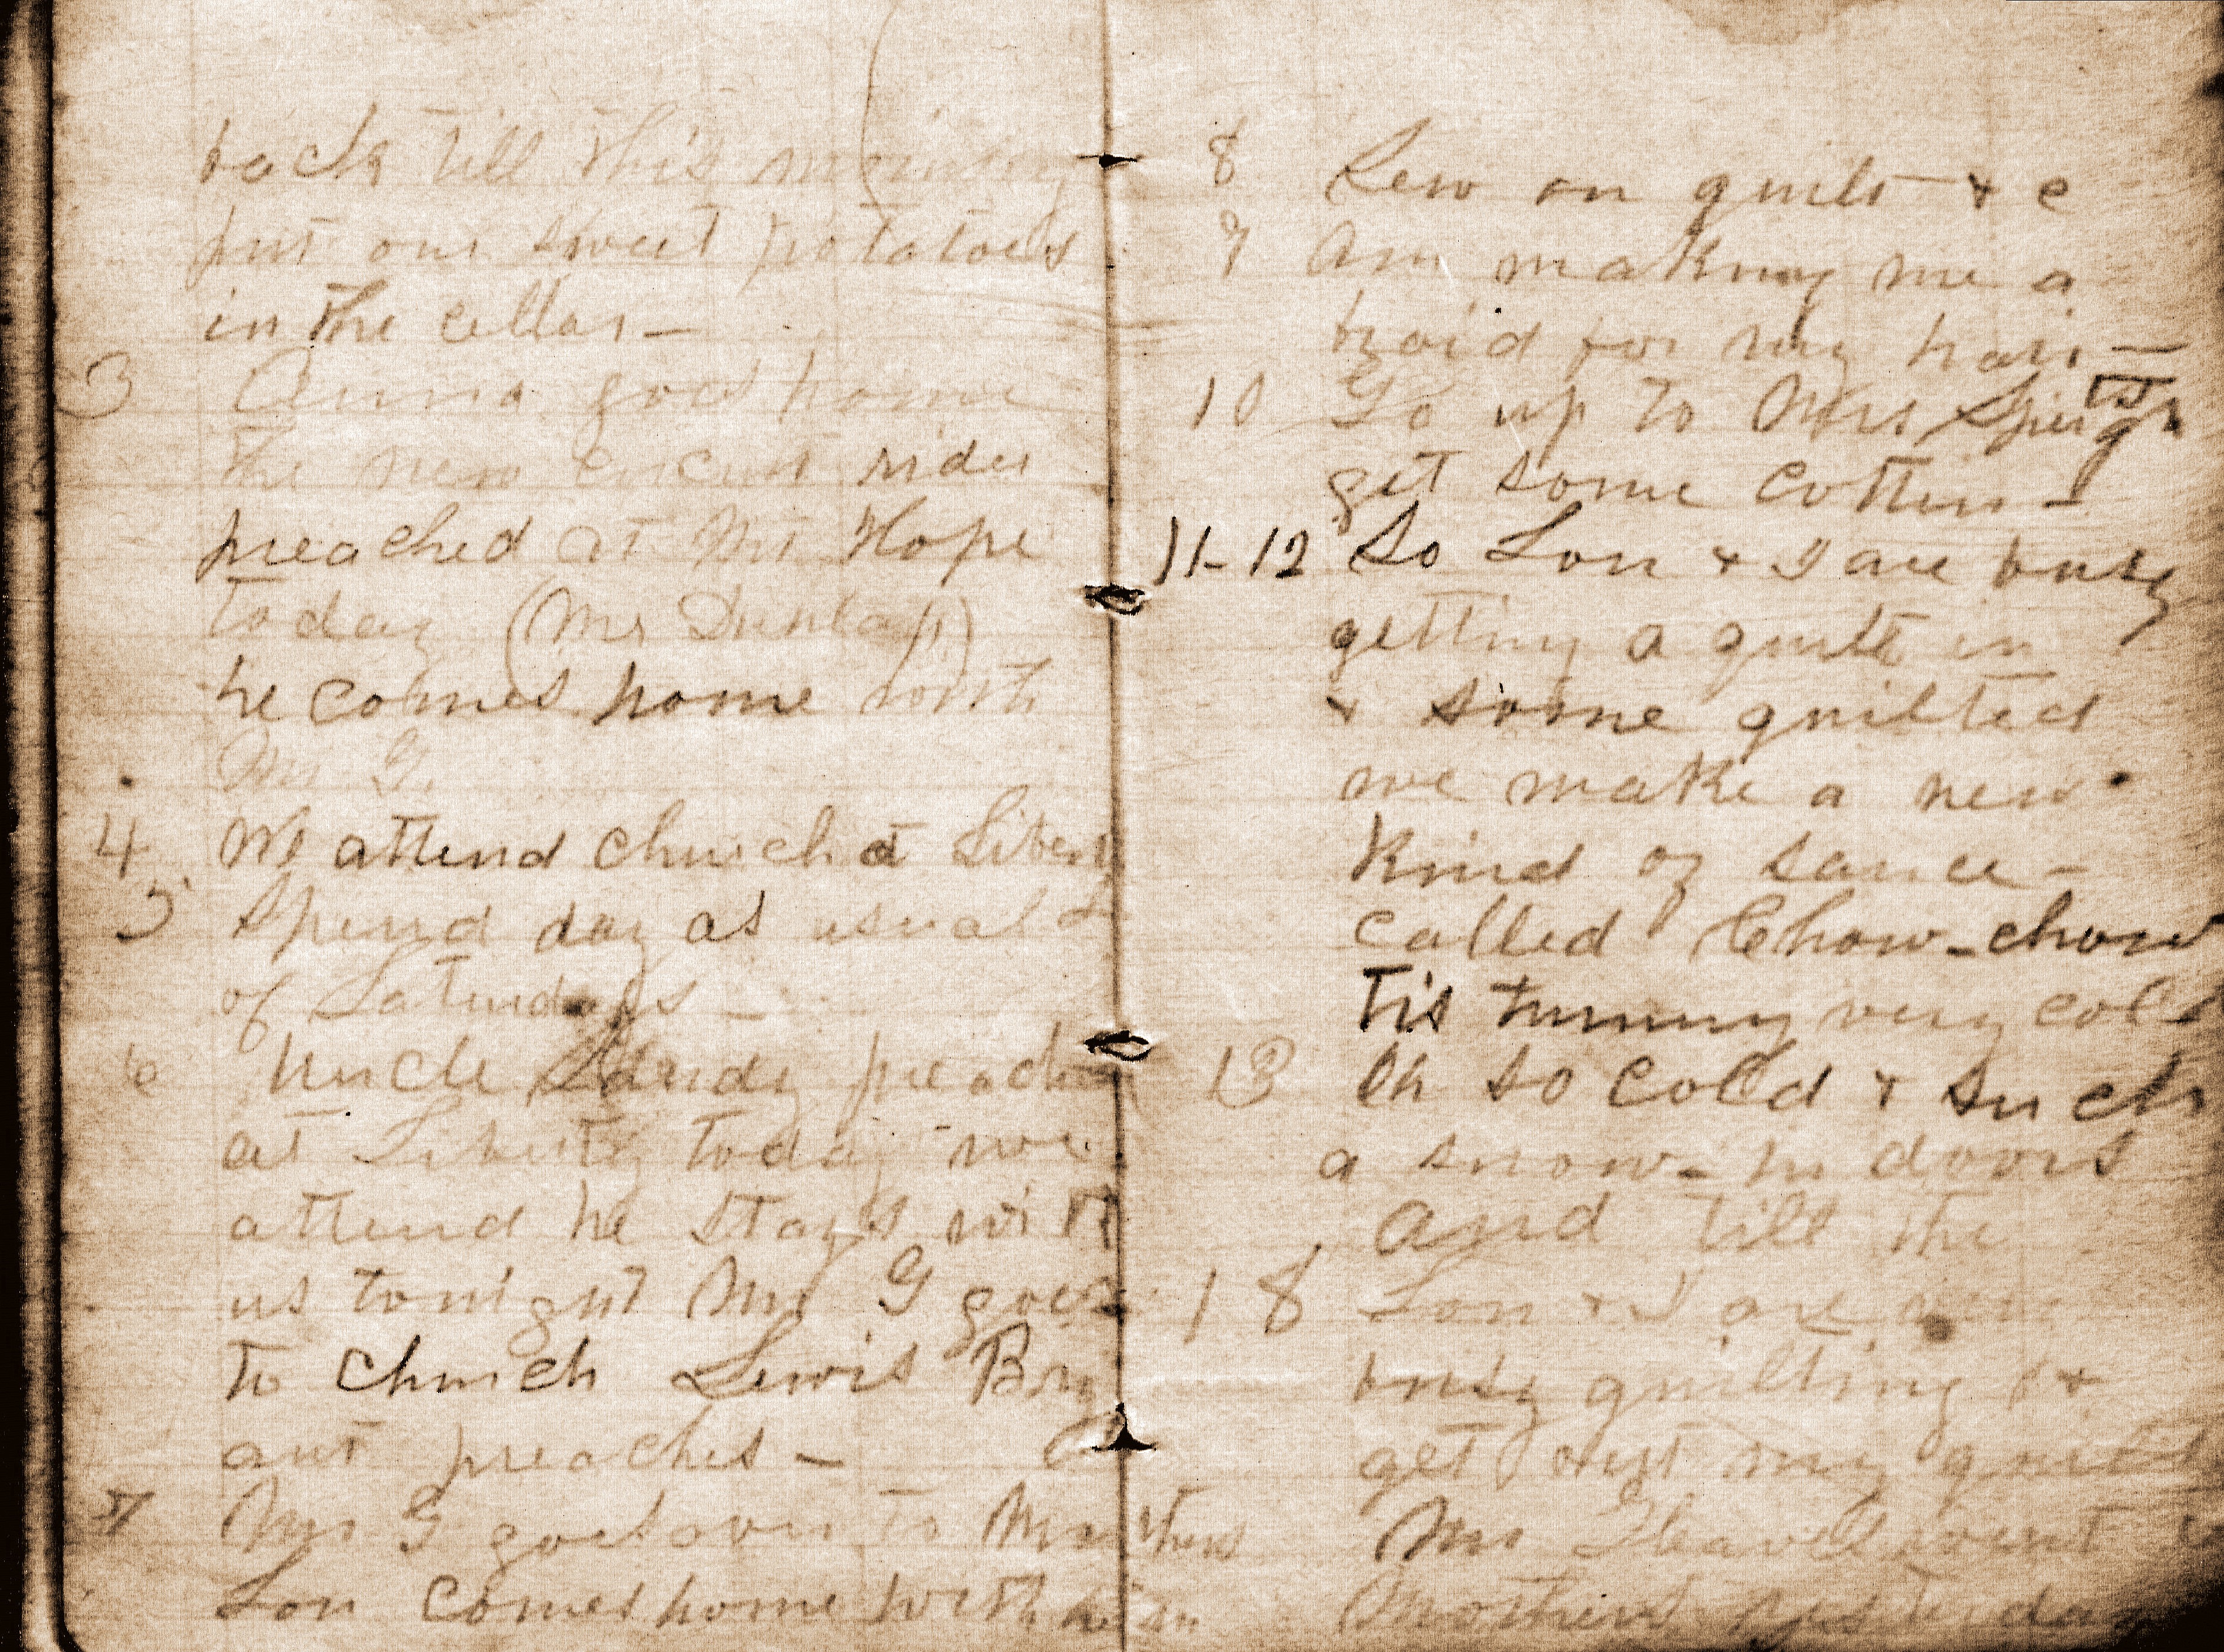 back till this morning
put our sweet potatoes
in the cellar –
3 Anna goes home
the new circuit rider
preached at Mt Hope
today (Mr Dunlap)
he comes home with
Mr G.
4 We attend church at Liberty
5 Spend day as usual
of Saturdays –
6 Uncle Sandy preaches
at Liberty today we
attend he stays with
us tonight Mr G goes
to church Lewis Bry
ant preaches –
7 Mr G goes over to Mothers
Lon comes home with him
8 Sew on quilt & c
9 Am making me a
braid for my hair –
10 Go up to Mrs to
get some cotten –
11–12 So Lon & I are busy
getting a quilt in
& some quilted
we make a new
kind of sauce –
called Chow–chow
Tis turning very cold
13 Oh so cold & such
a snow – In doors
and till the
18 Lon & I are
busy quilting &
get out my quilt
Mr went
Mothers yesterday